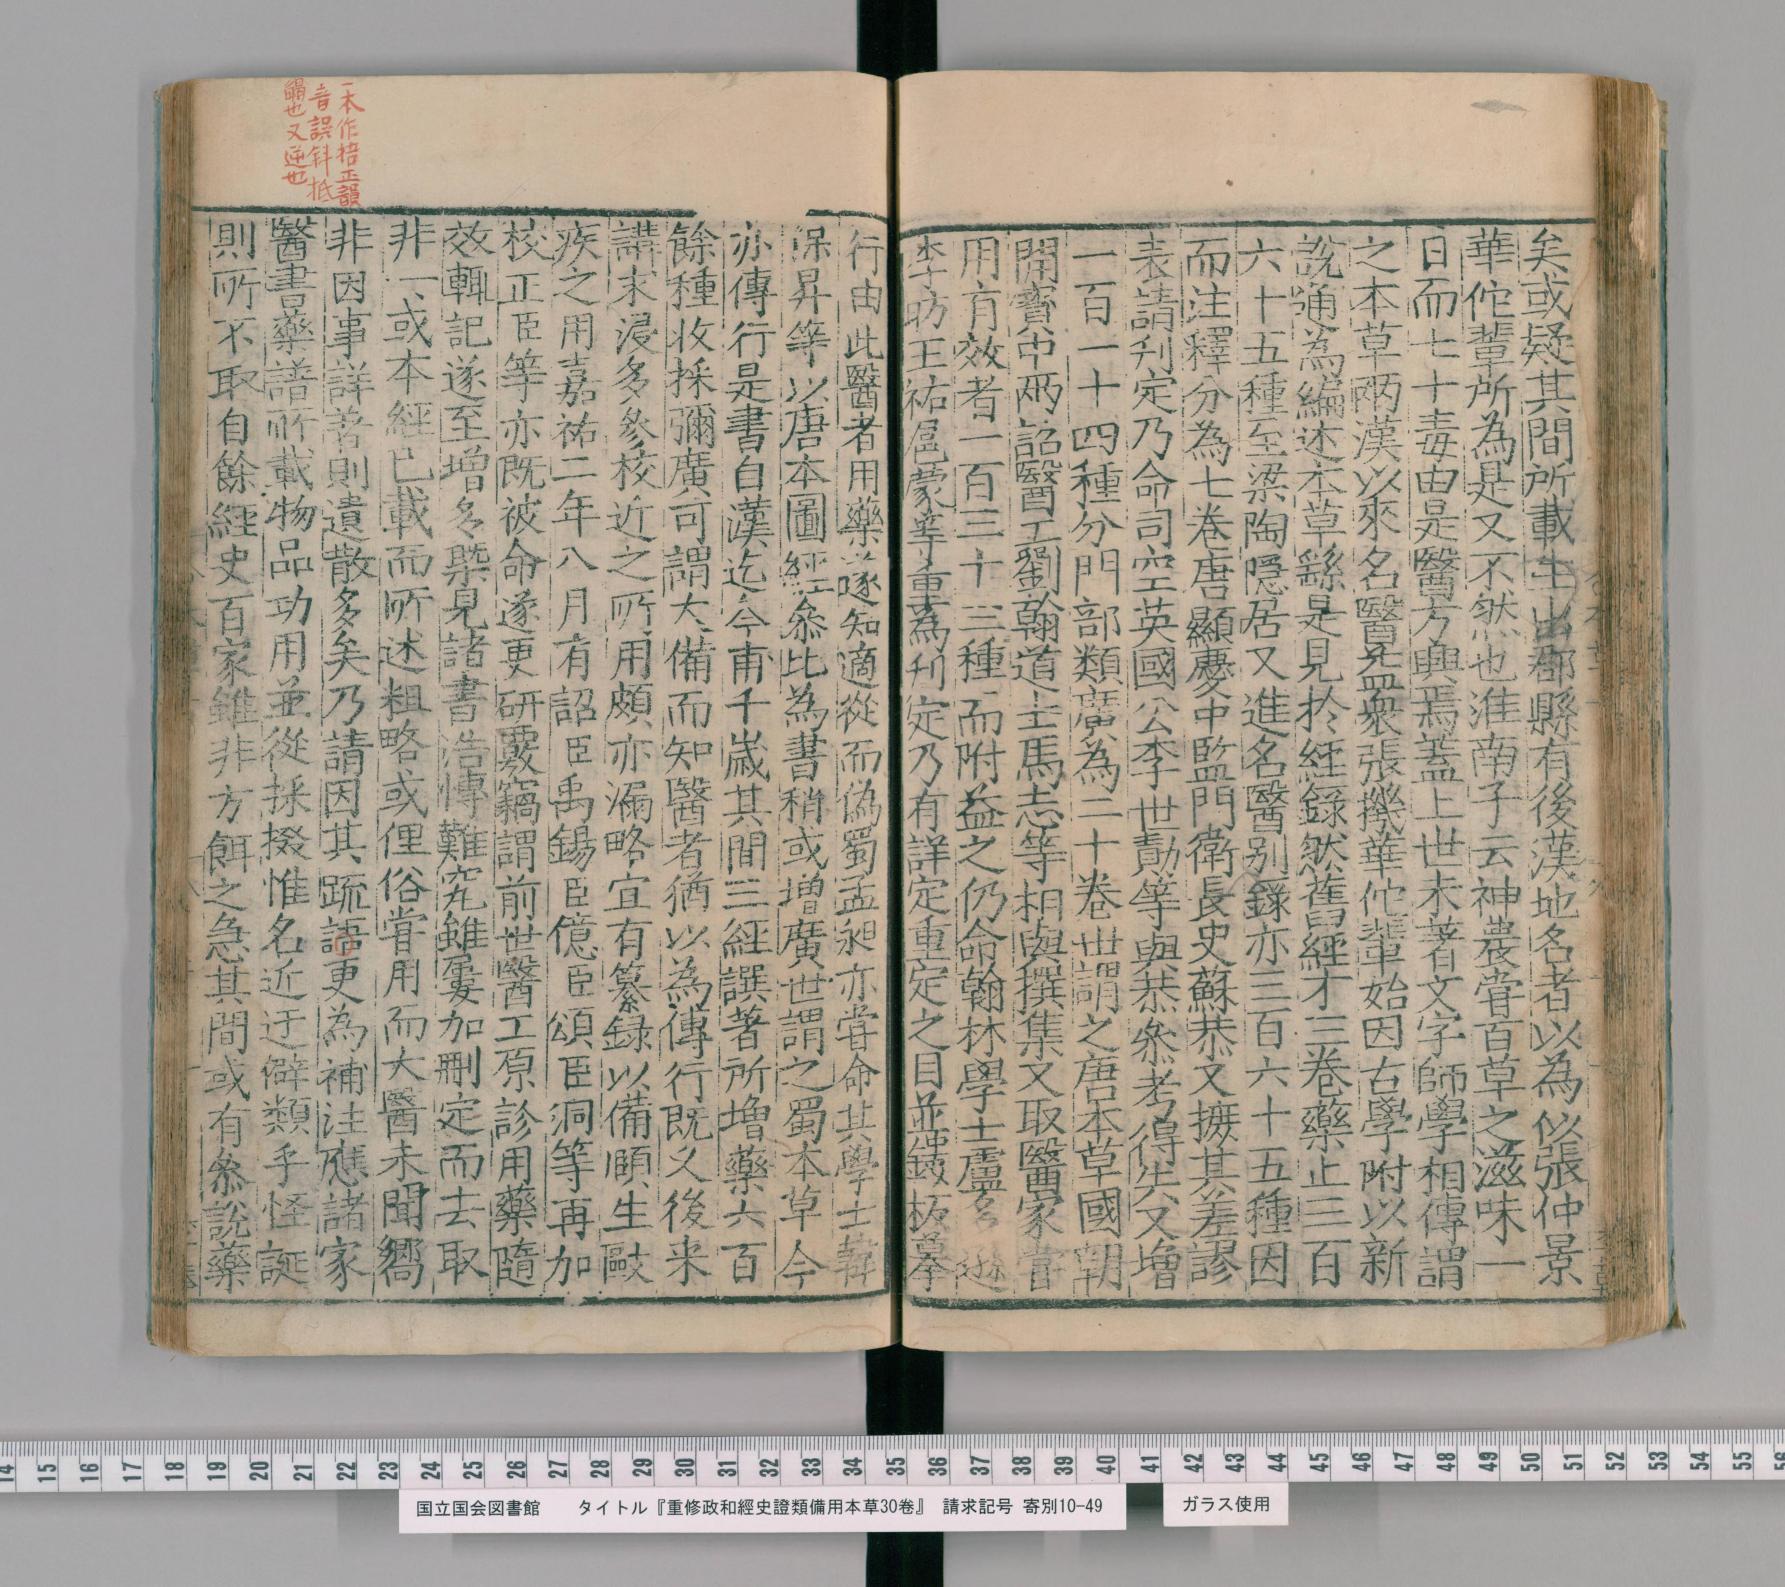 矣或疑其間所載生出郡縣有後漢地名者以為似張仲景
華佗輩所為是又不然也淮南子云神農嘗百草之滋味一
日而七十毒由是醫方興焉蓋上世未著文字師學相傳謂
之本草兩漢以來名醫益衆張機華佗輩始因古學附以新
說通為編述本草繇是見於經錄然舊經才三卷藥止三百
六十五種至梁陶隱居又進名醫別錄亦三百六十五種因
而注釋分為七卷唐顯慶中監門衛長史蘇恭又摭其差謬
表請刋定乃命司空英國公李世勣等與恭叅考得失又增
一百一十四種分門部類廣為二十卷世謂之唐本草國朝
開寶中兩詔醫工劉翰道士馬志等相與撰集又取醫家嘗
用有效者一百三十三種而附益之仍命翰林學士盧多遜
李昉王祐扈蒙等重為刋定乃有詳定重定之目並鏤板摹
行由此醫者用藥遂知適從而偽蜀孟昶亦嘗命其學士韓
保昇等以唐本圖經叅比為書稍或增廣世謂之蜀本草今
亦傳行是書自漢迄今甫千歲其間三經譔著所增藥六百
餘種收採彌廣可謂大備而知醫者猶以為傳行旣久後来
講求浸多參校近之所用頗亦漏略宜有纂録以備頤生敺
疾之用嘉祐二年八月有詔臣禹錫臣億臣頌臣洞等再加
校正臣等亦旣被命遂更研覈竊謂前世醫工原診用藥隨
效輙記遂至增多槩見諸書浩愽難究雖屢加刪定而去取
非一或本經已載而所述粗略或俚俗嘗用而大醫未聞嚮
非因事詳著則遺散多矣乃請因其疏䛩更為補注應諸家
醫書藥譜所載物品功用並從採掇惟名近迂僻類乎怪誕
則所不取自餘經史百家雖非方餌之急其間或有叅說藥
一本作捂正韻
音誤斜抵
觸也又逆也
国立国会図書館 タイトル『重修政和經史證類備用本草30巻』 請求記号 寄別10-49
ガラス使用
14 15 16 17 18 19 20 21 22 23 24 25 26 27 28 29 30 31 32 33 34 35 36 37 38 39 40 41 42 43 44 45 46 47 48 49 50 51 52 53 54 55 56